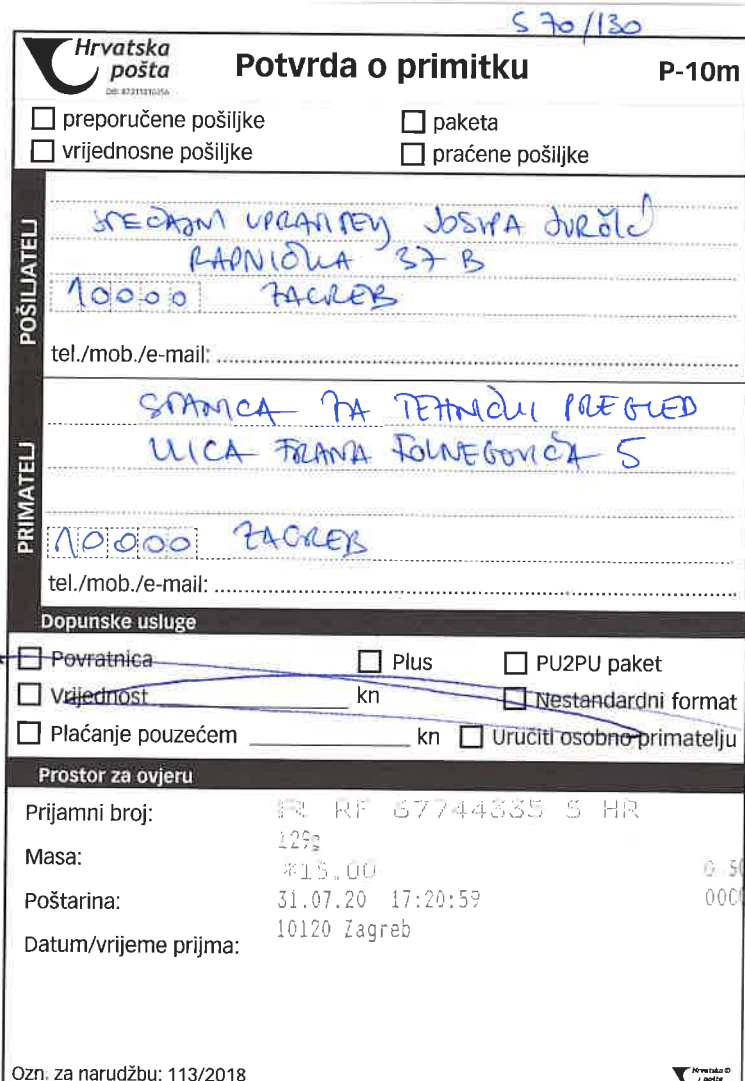 S 70/130
Hrvatska
pošta
Potvrda o primitku
P-10m
preporučene pošiljke
paketa
vrijednosne pošiljke
praćene pošiljke
POŠILJATELJ
STEČAJNI UPRAVITELJ JOSIPA JURČIĆ
37 B
10000 ZAGREB
tel./mob./e-mail:
PRIMATELJ
STANICA ZA TEHNIČKI PREGLED
ULICA FRANA FOLNEGOVIĆA 5
10000 ZAGREB
tel./mob./e-mail:
Dopunske usluge
Povratnica
Plus
PU2PU paket
Vrijednost kn
Nestandardni format
Plaćanje pouzećem kn
Uručiti osobno primatelju
Prostor za ovjeru
Prijamni broj: RF 67744335 5 HR
129g
Masa:
*15.00
Poštarina: 31.07.20 17:20:59
10120 Zagreb
Datum/vrijeme prijma:
Ozn. za narudžbu: 113/2018
Hrvatska
pošta